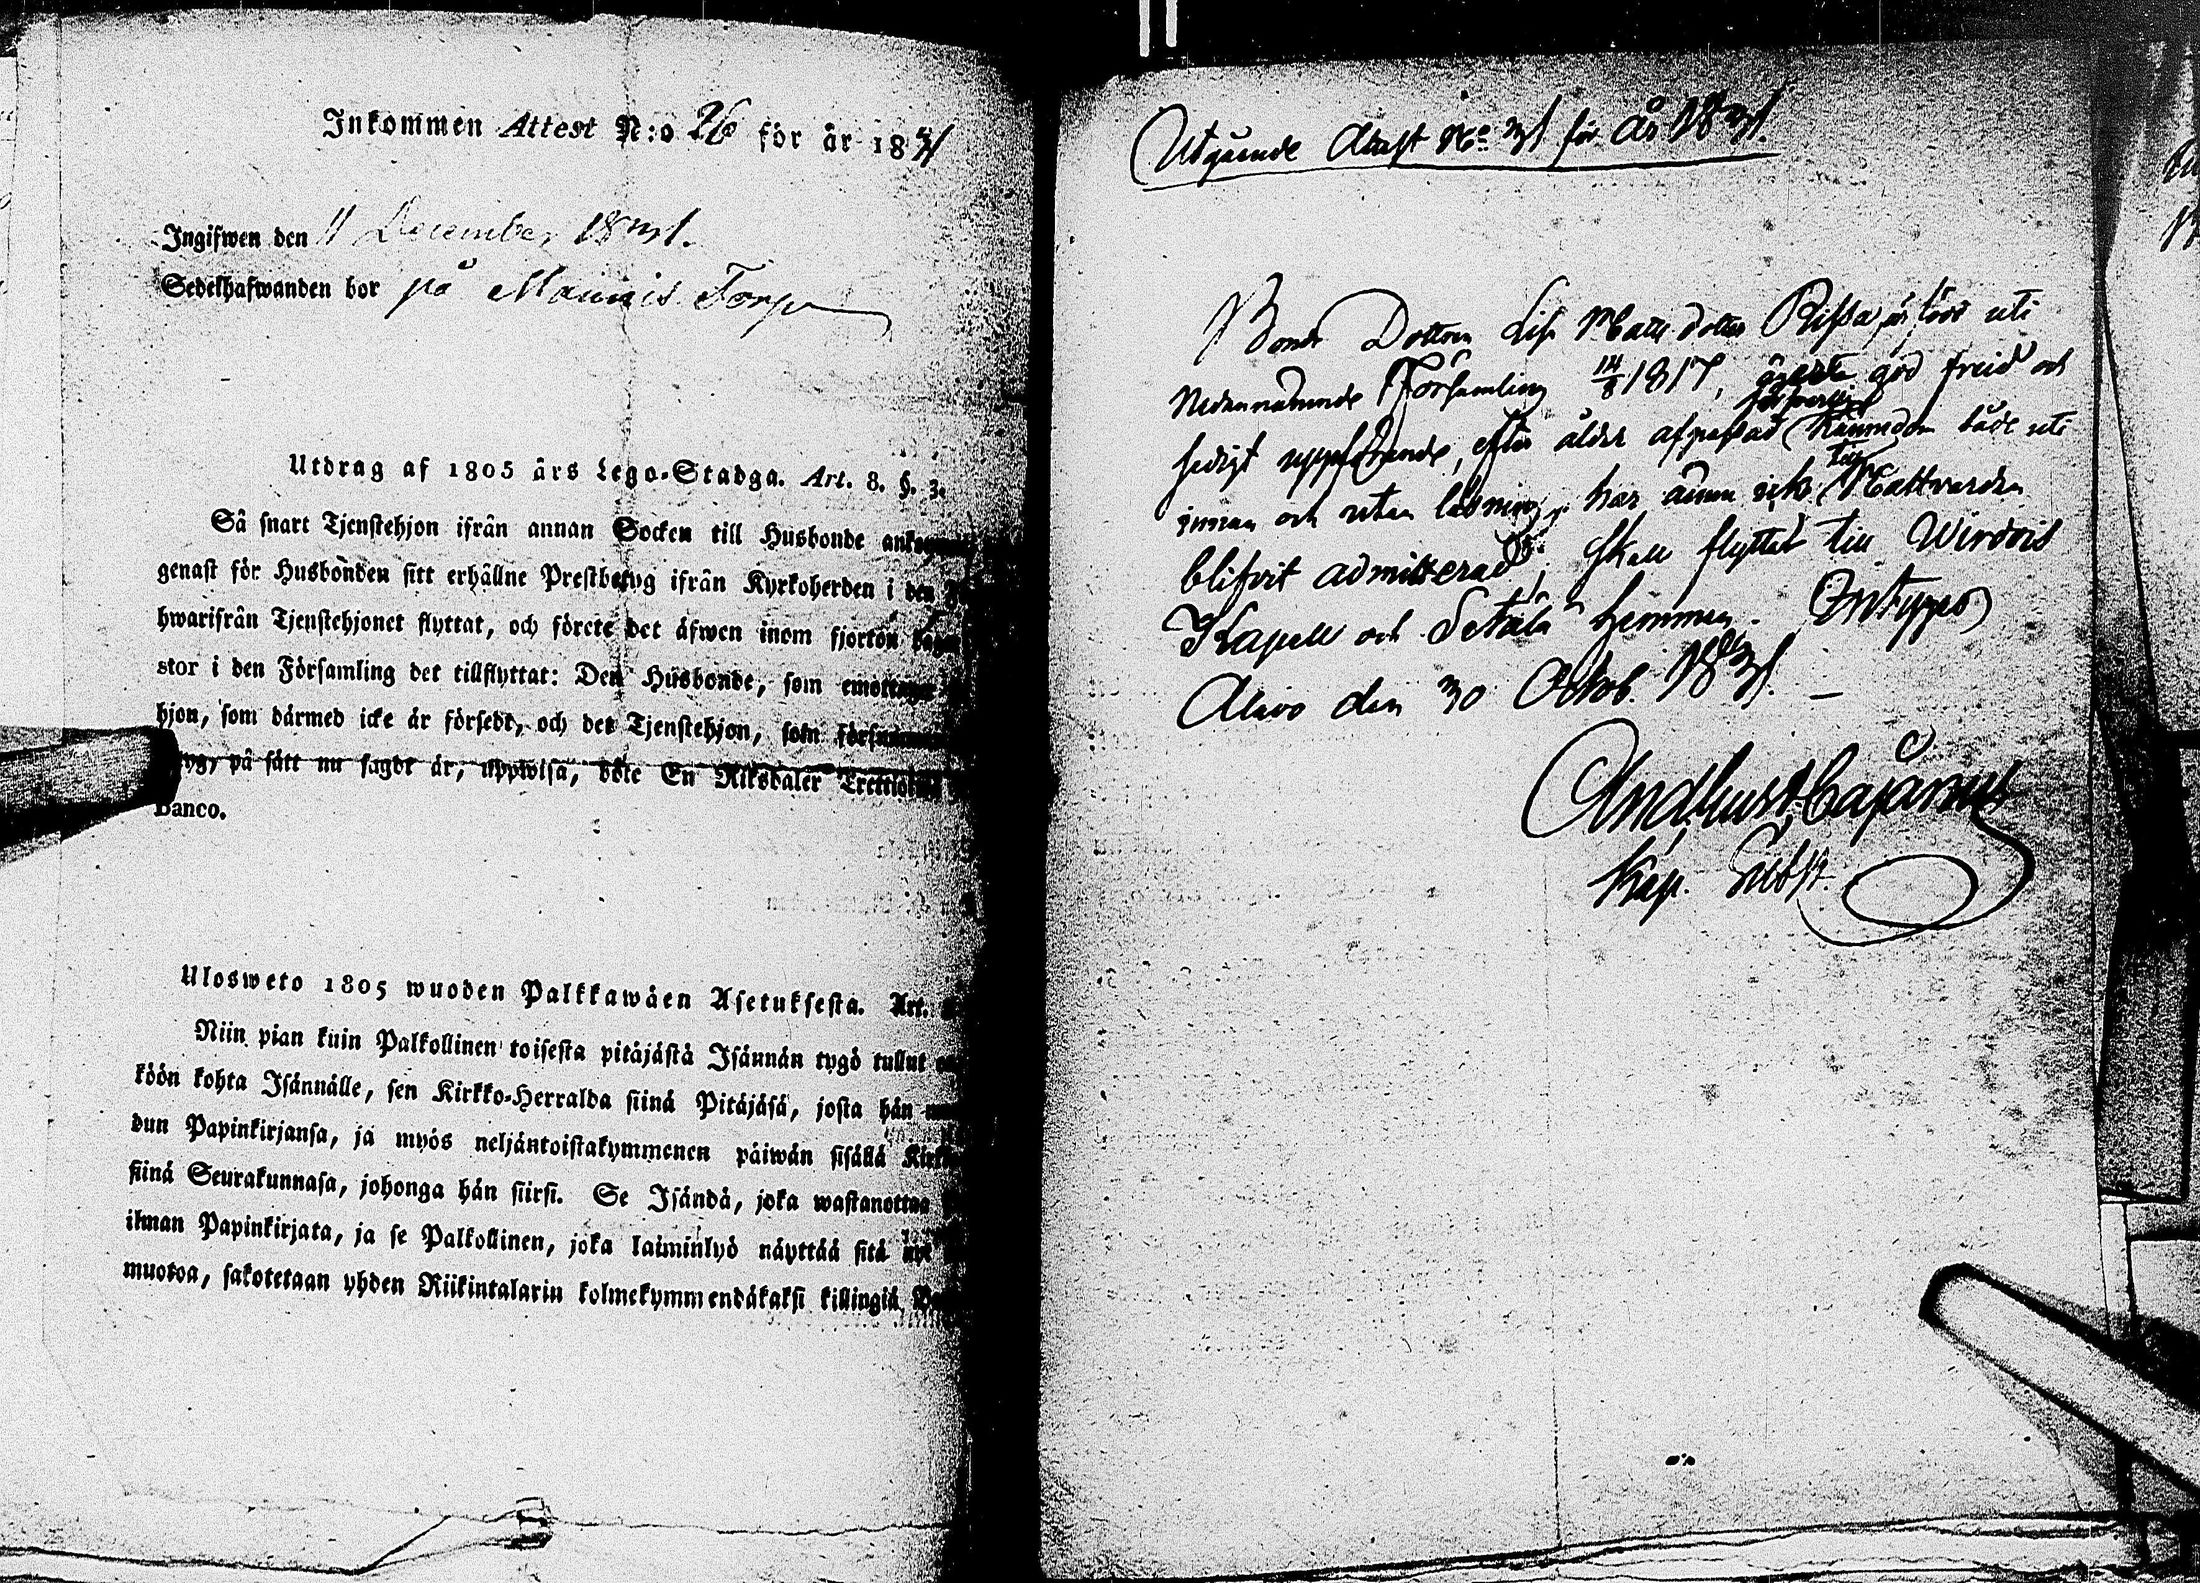 Inkommen Attest N:o 26 för år 1831
Ingifwen den 11 December 1831.
Sedelhafwanden bor på Maunis Torp
Utdrag af 1805 års Lego-Stadga. Art. 8. §. 3.
Så snart Tjenstehjon ifrån annan Socken till Husbonde
genast för Husbonden sitt erhållne Prestbetyg ifrån Kyrkoherden i den
hwarifrån Tjenstehjonet flyttat, och förete det äfwen inom fjorton
stor i den Församling det tillflyttat: Den Husbonde, som emottager
hjon, som därmed icke är försedt, och det Tjenstehjon, som
på sätt nu sagdt är, uppwisa, böte En Riksdaler
Banco.
Ulosweto 1805 wuoden Palkkawäen Asetuksesta. Art.
Niin pian kuin Palkollinen toisesta pitäjästä Isännän tygö tullut
köön kohta Isännälle, sen Kirkko-Herralda siinä Pitäjäsä, josta hän
dun Papinkirjansa, ja myös neljäntoistakymmenen päiwän sisällä
siinä Seurakunnasa, johonga hän siirsi. Se Isändä, joka wastanottaa
ilman Papinkirjata, ja se Palkollinen, joka laiminlyö näyttää sitä
muotoa, sakotetaan yhden Riikintalarin kolmekymmendäkaksi killingiä
Utgående Attest No 31 för år 1831.
Bonde Dottren Lisa Matts dotter Rissa är född uti
Nedannämnde Församling 14/8 1817, god freid och
sedigt uppförande, efter ålder afpassad Kunnedom både uti
innan och utan läsning, har ännu icke till Nattvarden
blifvit admitterad, skall flytta till Wirdois
Kapell och Setälä hemman.
Alavo den 30 Octob. 1831. –
Cajanus
Kap. Subst.